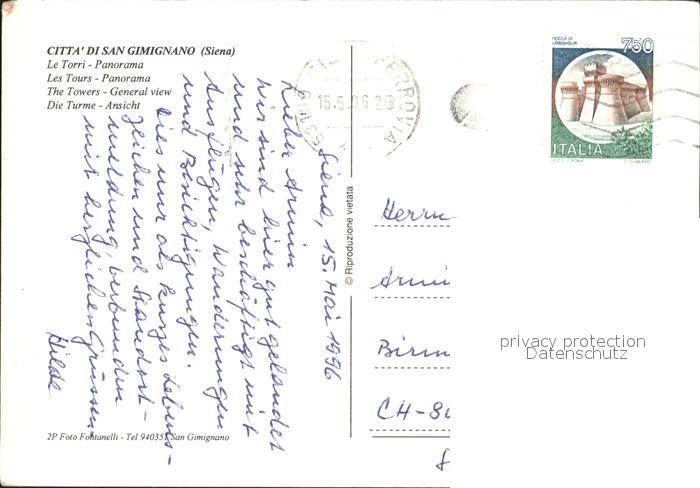 CITTA' DI SAN GIMIGNANO (Siena)
Le Torri - Panorama
Les Tours - Panorama
The Towers - General view
Die Turme - Ansicht
Siena, 15. Mai 1996
Lieber Armin
Wir sind hier gut gelandet
und sehr beschäftigt mit
Ausflügen, Wanderungen
und Besichtigungen.
Dies nur als kurzes Lebens-
zeichen und Standort-
meldung, verbunden
mit herzlichen Grüssen
Hilde
2P Foto Fontanelli - Tel 940351 San Gimignano
© Riproduzione vietata
15.5.96 20
FERROVIA
ROCCA DI
URBISAGLIA
750
ITALIA
Herrn
Armi
Birm
CH-8
privacy protection
Datenschutz